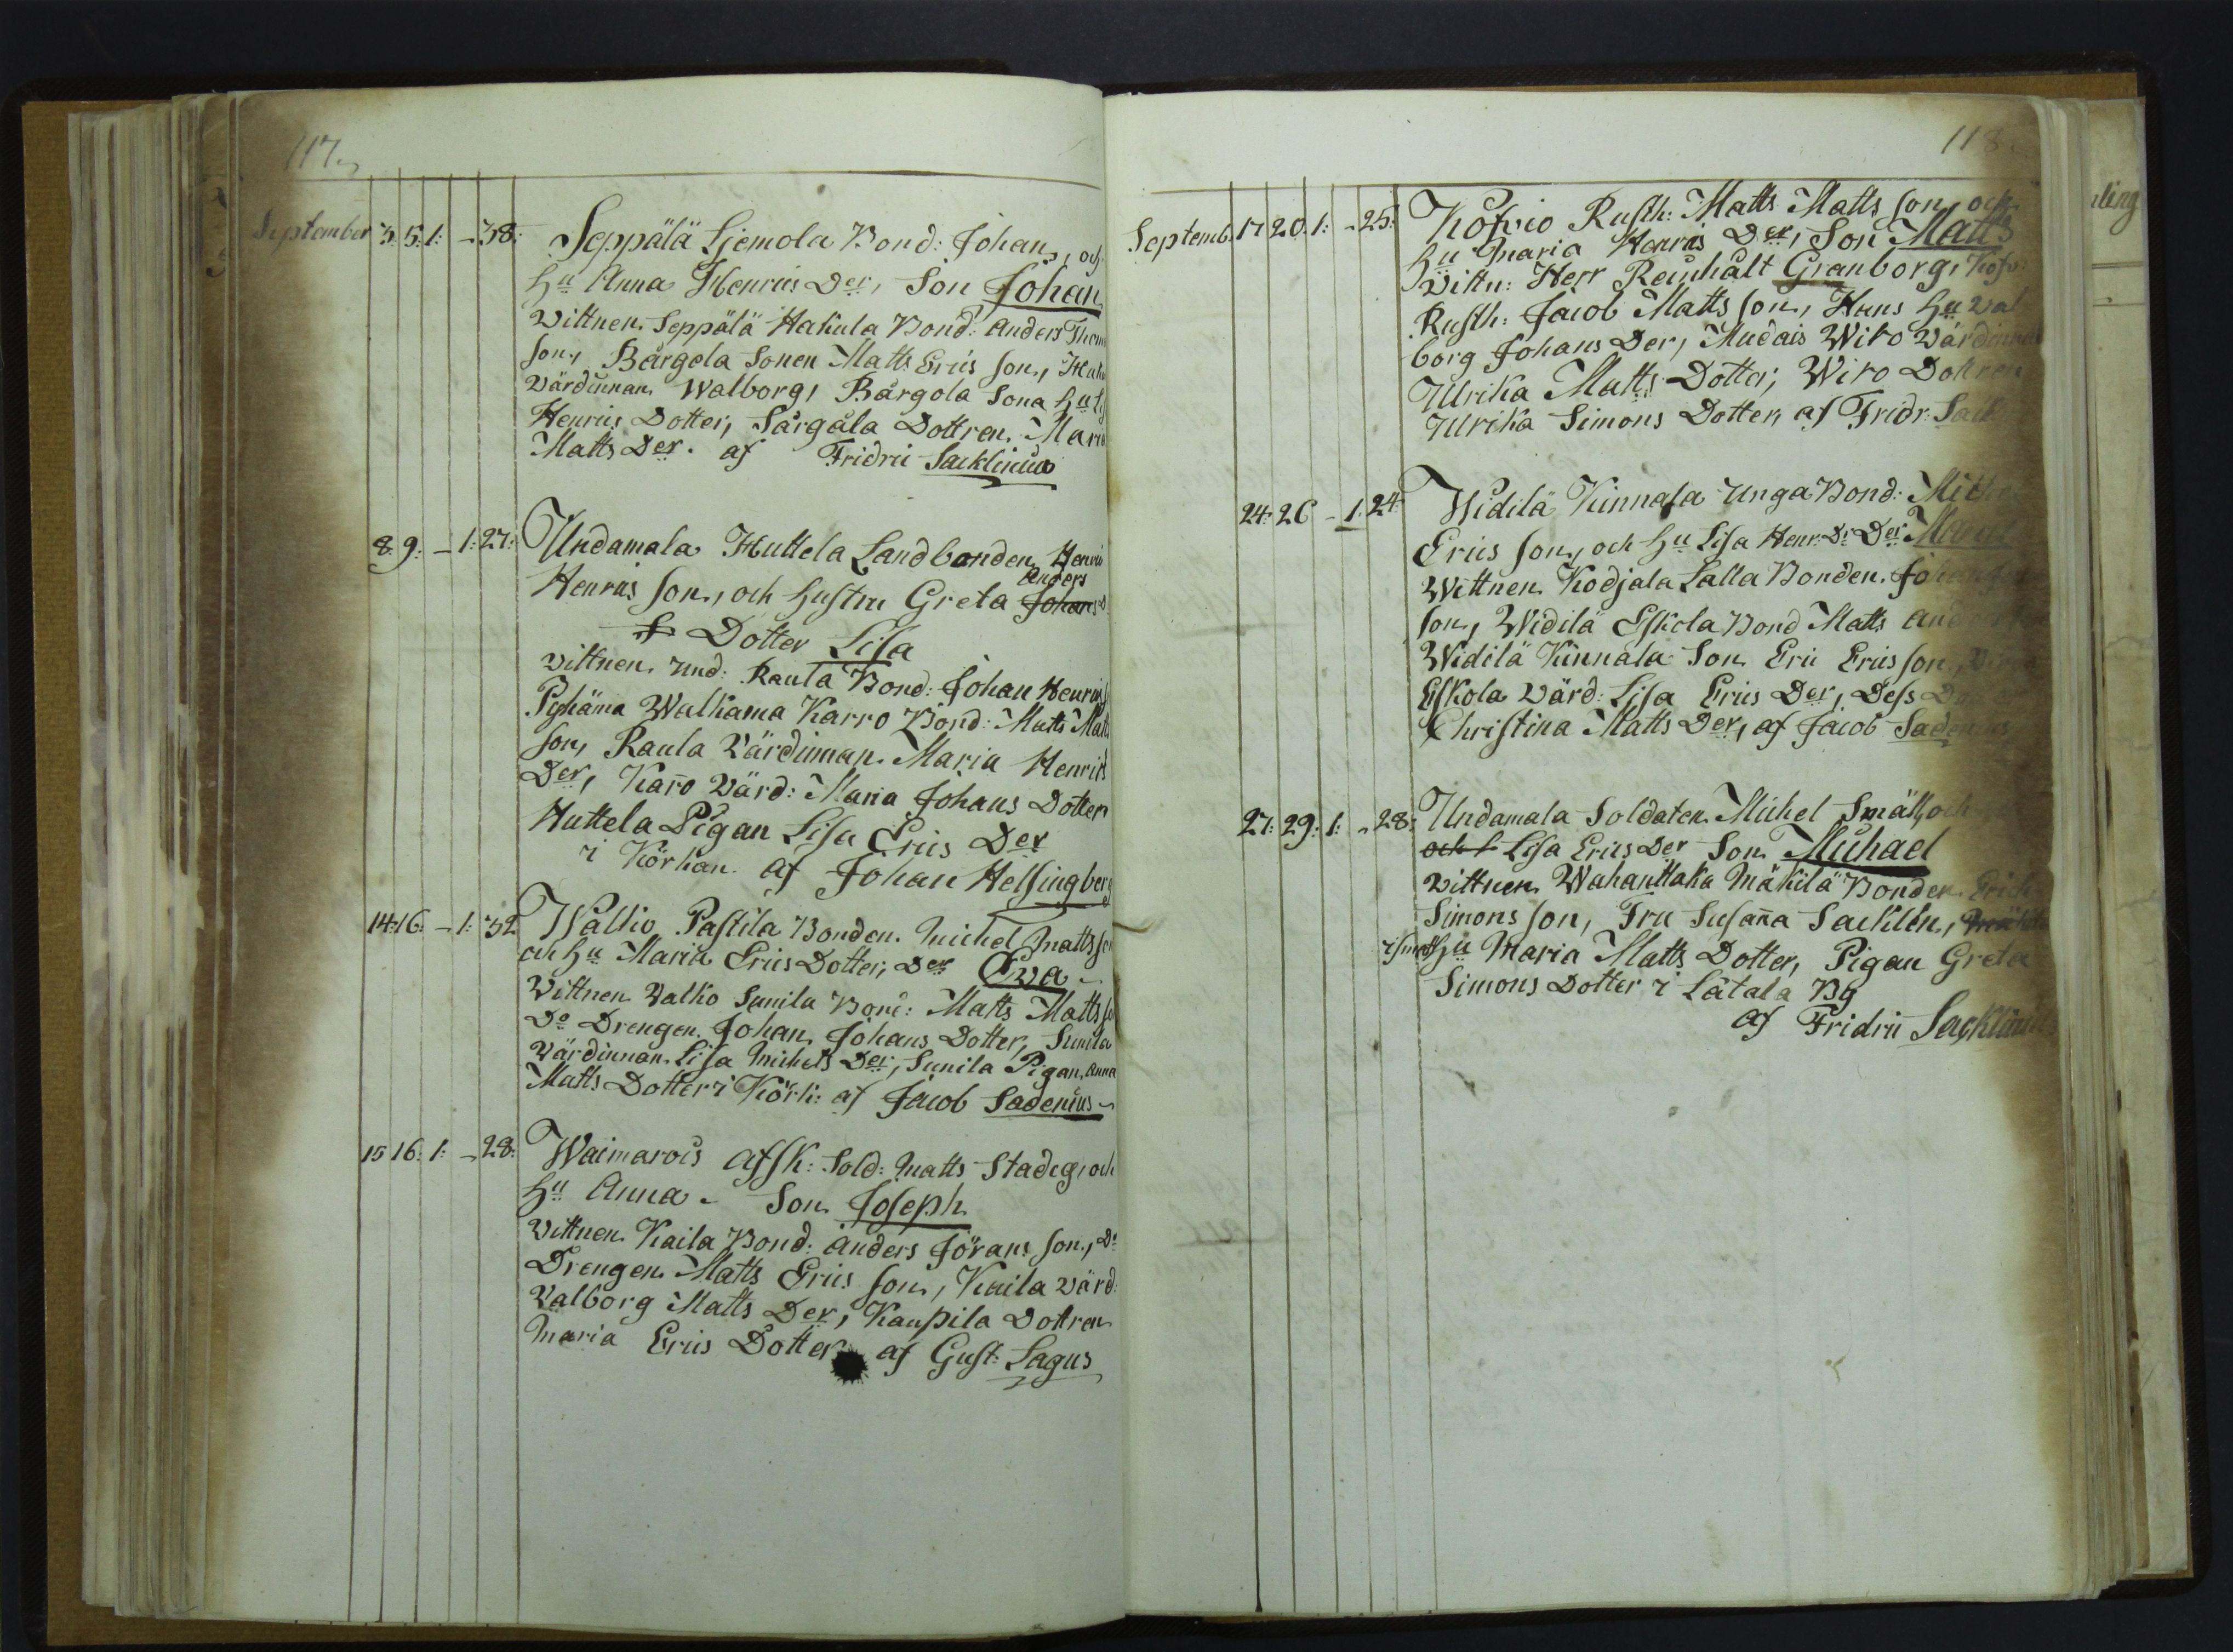 117.
September 3. 5. 1: - 38: Seppälä Ljemola Bond: Johan, och
Hu Anna Henrics Der, Son Johan
Vittnen. Seppälä Hakula Bond: Anders Thom
son, Bårgola Sonen Matts Erics son,
Värdinnan Walborg, Bårgola Sona Hu
Henrics Dotter, Sårgåla Dottren. Maria
Matts Der. af Fridric Sacklinius
8. 9: - 1: 27: Undamala Huttela Landbonden Henric
Anders
Henrics son, och Hustru Greta Johans
Dotter Lisa
vittnen. Und: Raula Bond: Johan Henrics
Pyhäma Walkama Karro Bond: Matts Matts
son, Raula Värdinnan. Maria Henrics
Der, Karro Värd: Maria Johans Dotter
Huttela Pigan Lisa Erics Der
i Körkan. af Johan Helsingberg
14. 16. - 1: 32 Walko Pastila Bonden. Michel Matts son
och Hu Maria Erics Dotter, Der Eva
Vittnen Valko Sunila Bond: Matts Matts
Do Drengen. Johan Johans Dotter, Sunila
Värdinnan. Lisa Michels Der, Sunila Pigan, Anna
Matts Dotter i Körk: af Jacob Sadenius
15 16. 1: - 28: Waimarois Afsk: Sold: Matts Stadig, och
Hu Anna. Son Joseph
Vittnen. Kaila Bond: Anders Jörans son, Do
Drengen Matts Erics son, Kaila värd:
Valborg Matts Der, Kaupila Dottren
Maria Erics Dotter af Gust: Sagus
118.
Septemb. 17 20. 1: - 25: Kofvio Rusth: Matts Matts son, och
Hu Maria Henrics Der, Son Matts
Vittn: Herr Reinhålt Granborg,
Rusth: Jacob Matts son, Hans Hu Wal
borg Johans Der, Mudais Wiro Värdinnan
Ulrika Matts Dotter, Wiro Dottren
Ulrika Simons Dotter, af Fridr: Sack
24. 26 - 1. 24. Widilä Kinnala Unga Bond:
Erics son, och Hu Lisa Henr: Der
Wittnen. Kodjala Lalla Bonden.
son, Widilä Eskola Bond Matts
Widilä Kinnala Son Eric Erics son,
Eskola Värd: Lisa Erics Der, Dess
Christina Matts Der, af Jacob Sadenius
27: 29: 1: - 28: Undamala Soldaten. Michel Smält, och
och Lisa Erics Der Son Michael
Vittnen. Wahantaka Mäkilä Bonden. Erich
Simons son, Fru Susanna Sacklén,
Hu Maria Matts Dotter, Pigan Greta
Simons Dotter i Låtala By
af Fridric Sacklinius